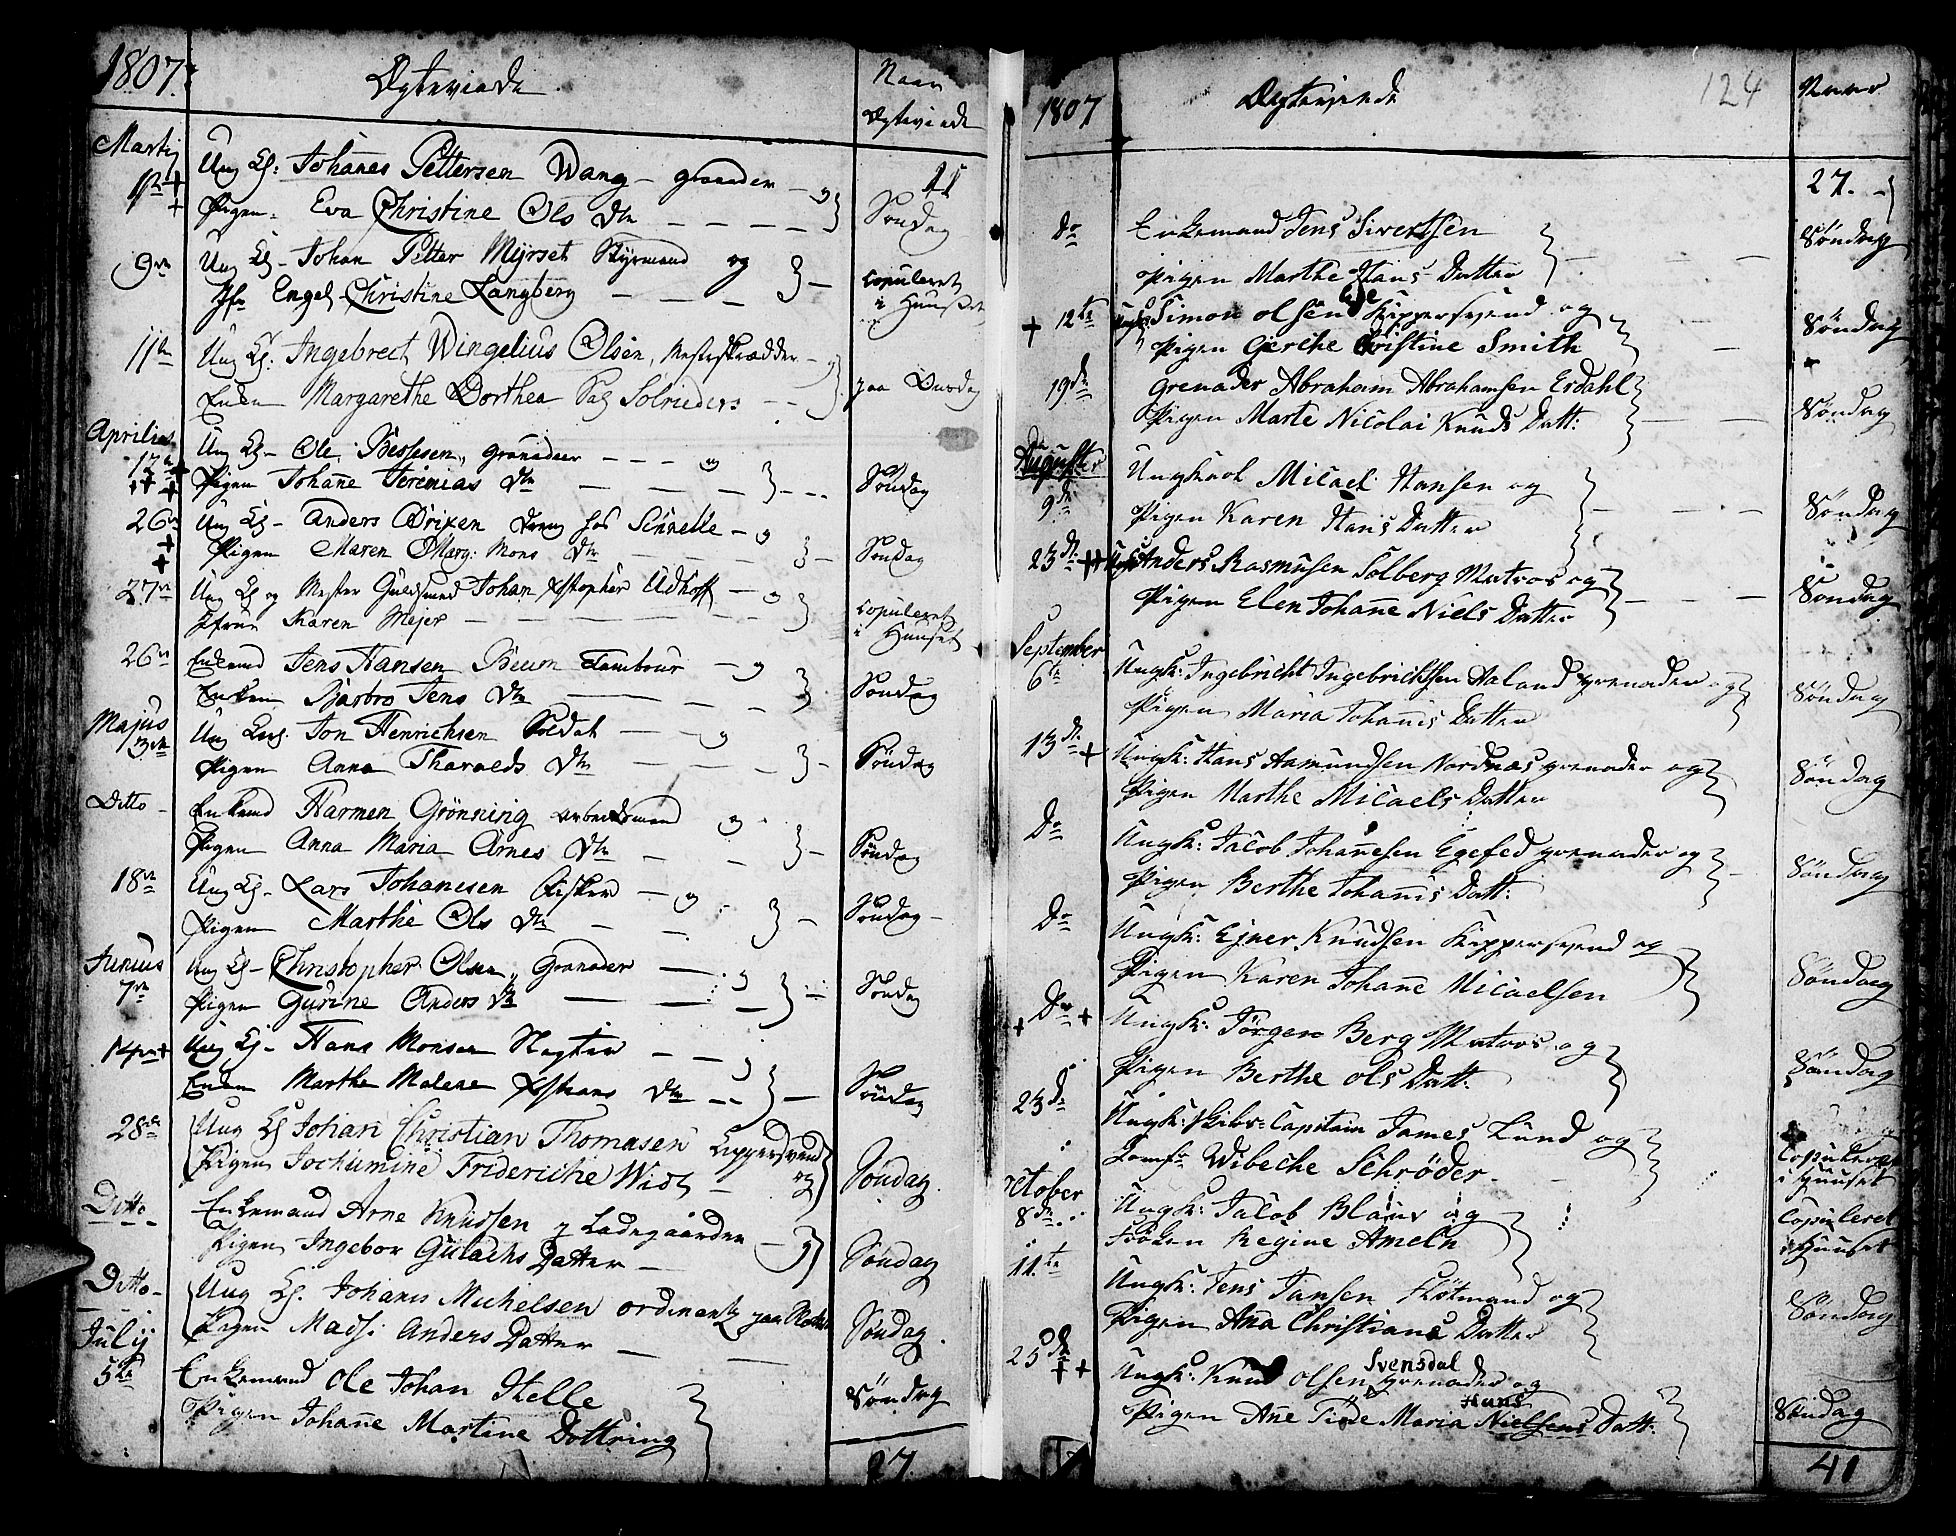 1807.
Ægteviede
Naar
Ægteviede
Martij
1ste
Ung K: Johanes Pettersen Wang - granader - og
11
Pigen - Eva Christine Ols Dtr
Søndag
9de
Ung K - Johan Petter Mejrset Styrmand og
copuleret
Jfr Engel Christine Langberg
i Huuset
11te
Ung K: Ingebrect Wingelius Olsen, Mesterskrædder - og
Enken Margarethe Dorthea Solrieders
paa Onsdag
Aprilies
12te
Ung K - Ole Bessesen, granadeer - og
Pigen Johane Jeremias Dtr
Søndag
26de
Ung K - Anders Orixen Dreng hos - og
Pigen Maren Marg: Mons Dtr
Søndag
27de
Ung K og Mester Guldsmed Johan Xstopher Udhoff - og
copuleret
Jfrue Karen Mejer
i Huuset
26de
Enkemd Jens Hansen Beum Tambour - og
Enken Barbro Jens Dtr
Søndag
Majus
3de
Ung K. Jon Henrichsen Soldat - og
Pigen Anna Tharalds Dtr
Søndag
Ditto -
Enkemd Harmen Grønning arbeidsmand og
Pigen Anna Maria Arnes Dtr
Søndag
18de
Ung K - Lars Johanesen Fisker - og
Pigen Marthe Ols Dtr
Søndag -
Junius
7de
Ung K - Christopher Olsen, Granader - og
Pigen Gurine Anders Dtr
Søndag
14de
Ung K - Hans Monsen Slagter - og
Enken Marthe Malene Xstians Dtr
Søndag
28de
Ung K Johan Christian Thomasen Kippersvend
Pigen Jochumine Frideriche Widt - og
Søndag.
Ditto
Enkemand Arne Knudsen Ladegaarden - og
Pigen Ingebor Gulachs Datter
Søndag
Ditto -
Ung K. Johanes Michelsen ordinants paa
Pigen Madsi Anders Datter
Søndag.
Julij
5te
Enkemand Ole Johan Helle
Pigen Johane Martine Dottring
Søndag
27.
1807
Ægteviede
124
Naar
27.
Do
Enkemand Jens Sivertsen
Pigen Marthe Hans Datter
Søndag
12te
Ungk: Simon olsen Kippersvend og
Pigen Gerche Cristine Smith
Søndag
19de
Grenader Abraham Abrahamsen Erdahl
Pigen Marte Nicolai Knuds Datt:
Søndag
Auguster
9de
Ungkarl Micael Hansen og
Pigen Karen Hans Datter
Søndag
23de
Ungk Anders Rasmusen Solberg Matros og
Pigen Elen Johane Niels Datter
Søndag
September
6te
Ungk: Ingebricht Ingebrichtsen Aaland grenader og
Pigen Maria Johanis Datter
Søndag
13de
Ungk: Hans Aamundsen Nordnæs grenader og
Pigen Marthe Micaels Datter
Søndag
Do
Ungk: Jacob Johanesen Egesed grenader og
Pigen Berthe Johanis Datt:
Søndag
Do
Ungk: Ejner Knudsen Kippersvend og
Pigen Karen Johane Micaelsen
Søndag
Do
Ungk: Jørgen Berg Matros og
Pigen Berthe ols Datt:
Søndag
23de
Ungk: Skibs-Capitain James Lund og
Copuleret
Jomfr Wibeche Schrøder
i Huuset
October
8de
Ungk: Jacob Blaus og
Copuleret
Frøken Regine Ameln
i Huuset
11te
Ungk: Jens Jansen Flotmand og
Pigen Ana Christians Datter
Søndag
25de
Svensdal
Ungk: Knud olsen grenader og
Hans
Pigen Ane Maria Nielsens Datt:
Søndag
41